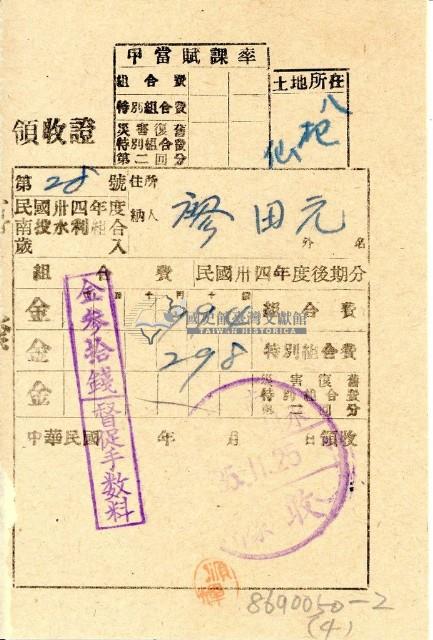 甲當賦課率
組合費
特別組合費
災害復舊
特別組合費
第二回分
土地所在
領收證
第28號
住所
民國卅四年度
南投水利組合
歲入
納人
廖田元
外 名
組合費
民國卅四年度後期分
金 994 組合費
金 298 特別組合費
金 災害復舊
特別組合費
第二回分
金參拾錢
督促手數料
中華民國 年 月 日領收
35.11.25
收
國史館臺灣文獻館
TAIWAN HISTORICA
8690050-2
(4)